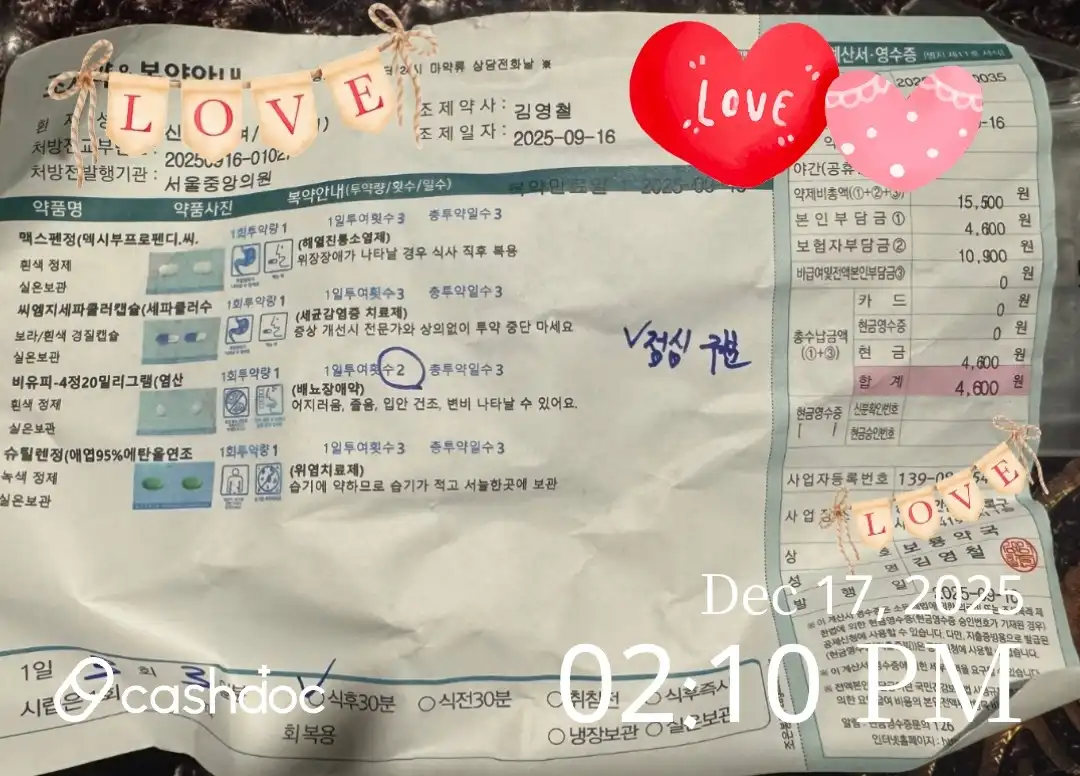 복약안내
24시 마약류 상담전화날 ※
LOVE
LOVE
조제약사 : 김영철
조제일자 : 2025-09-16
처방전발행기관 : 서울중앙의원
약품명 약품사진 복약안내(투약량/횟수/일수)
맥스펜정(덱시부프로펜디.씨.
흰색 정제
실온보관
1회투약량 1 1일투여횟수 3 총투약일수 3
(해열진통소염제)
위장장애가 나타날 경우 식사 직후 복용
씨엠지세파클러캡슐(세파클러수
보라/흰색 경질캡슐
실온보관
1회투약량 1 1일투여횟수 3 총투약일수 3
(세균감염증 치료제)
증상 개선시 전문가와 상의없이 투약 중단 마세요
비유피-4정20밀리그램(염산
흰색 정제
실온보관
1회투약량 1 1일투여횟수 2 총투약일수 3
(배뇨장애약)
어지러움, 졸음, 입안 건조, 변비 나타날 수 있어요.
슈틸렌정(애엽95%에탄올연조
녹색 정제
실온보관
1회투약량 1 1일투여횟수 3 총투약일수 3
(위염치료제)
습기에 약하므로 습기가 적고 서늘한곳에 보관
V점심 구분
계산서·영수증
야간(공휴
약제비총액(①+②+③) 15,500 원
본인부담금① 4,600 원
보험자부담금② 10,900 원
비급여및전액본인부담금③ 0 원
총수납금액(①+③)
카드 0 원
현금영수증 0 원
현금 4,600 원
합계 4,600 원
현금영수증 신분확인번호
( ) 현금승인번호
사업자등록번호
LOVE
상호 보룡약국
성명 김영철
발행일 2025-09-16
Dec 17, 2025
02:10 PM
1일
cashdoc
식후30분 ○식전30분
회복용 ○냉장보관 ○실온보관